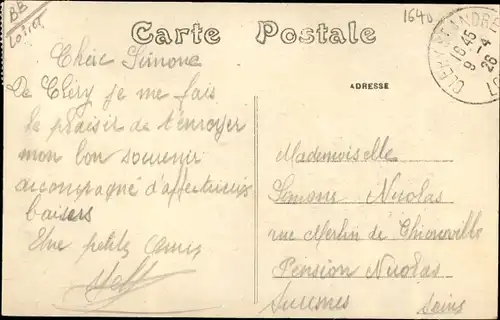 BB
Loiret
Carte Postale
1640
CLERY ST ANDRE
16-45
9-4
26
ADRESSE
Chère Simone
De Cléry je me fais
le plaisir de t'envoyer
mon bon souvenir
accompagné d'affectueux
baisers
Une petite amie
Mademoiselle
Simone Nicolas
rue Merlin de Thionville
Pension Nicolas
Suresnes Seine